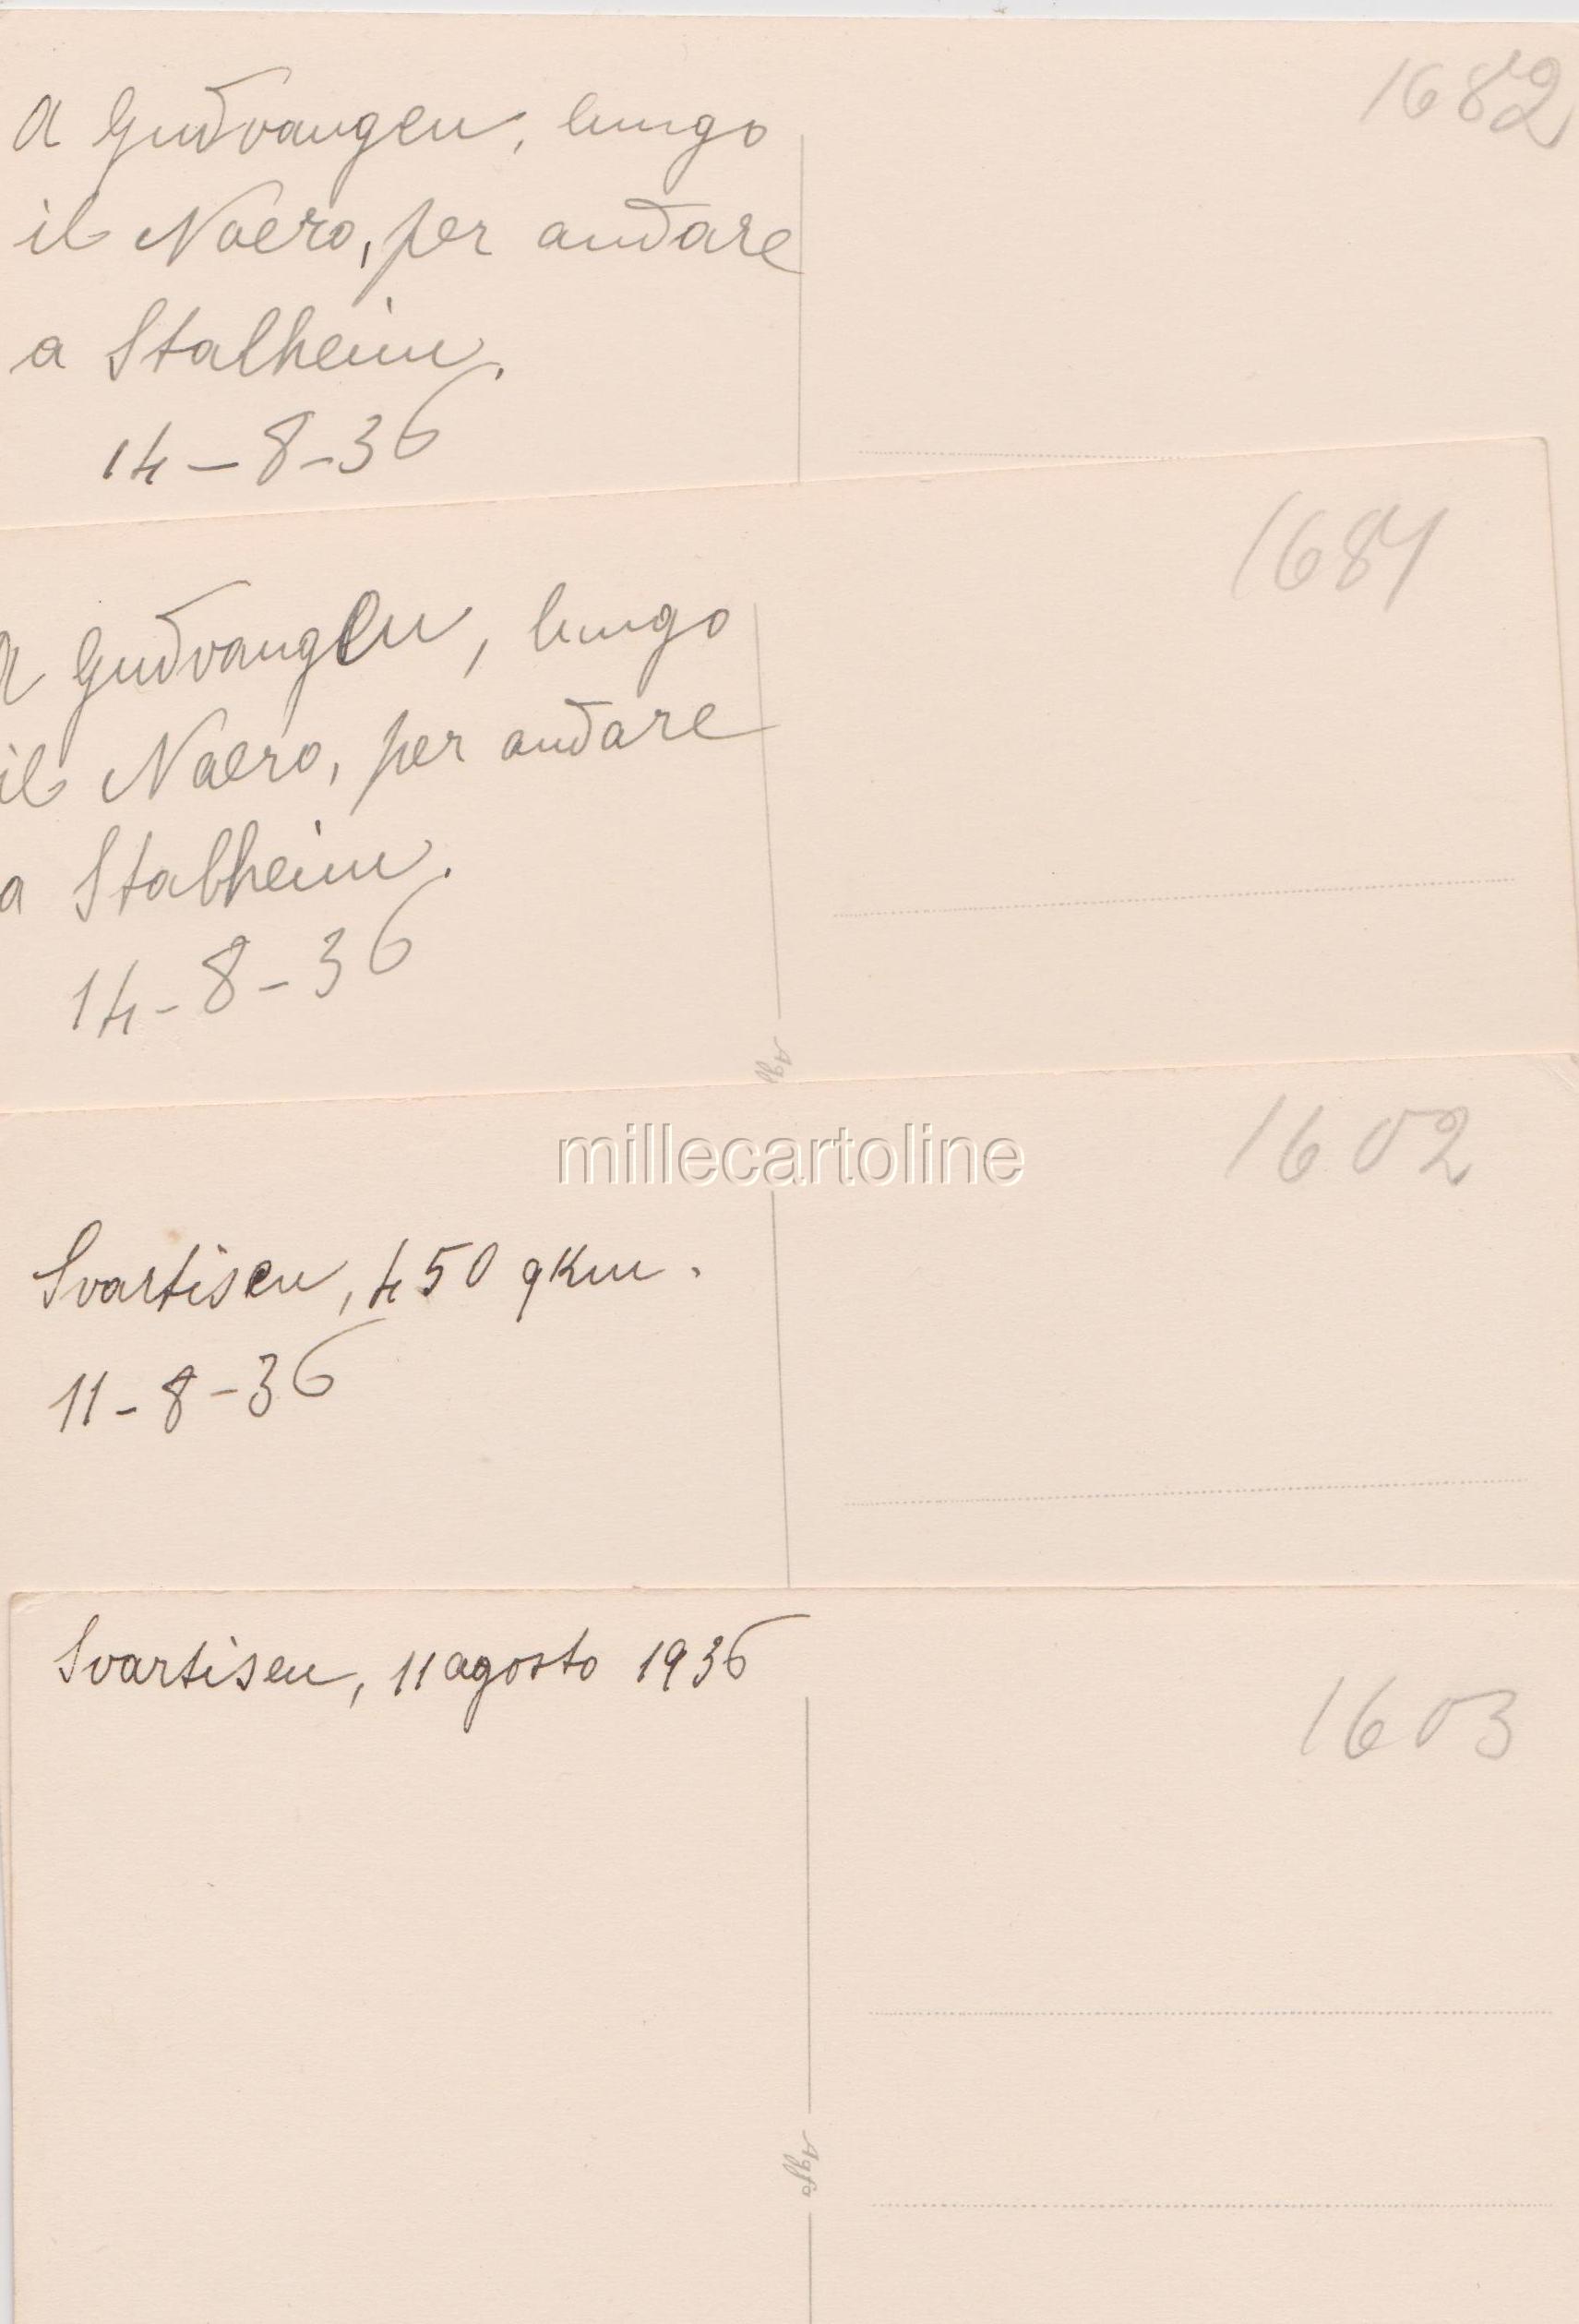 1682
A Gudvangen, lungo
il Naero, per andare
a Stalheim.
14-8-36
1684
A Gudvangen, lungo
il Naero, per andare
a Stalheim.
14-8-36
Agf
millecartoline
1602
Svartisen, 450 qKm.
11-8-36
Svartisen, 11 agosto 1936
1603
Agfa